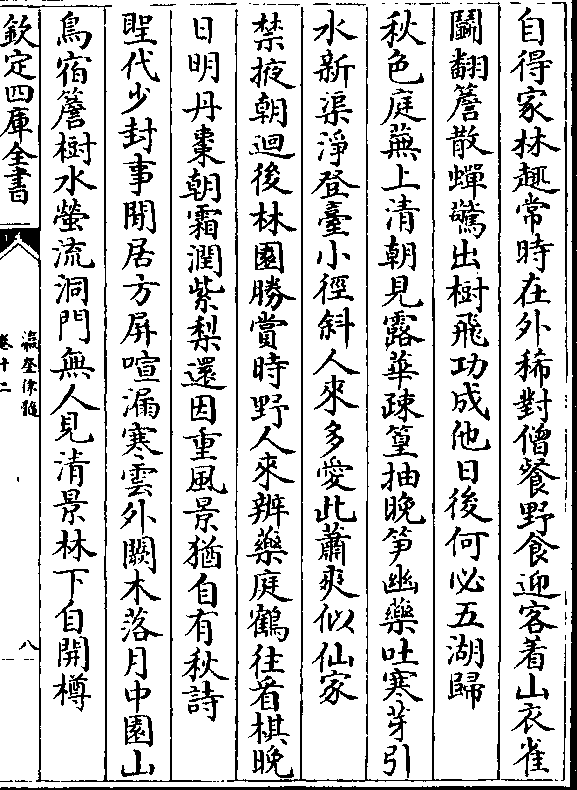 自得家林趣常時在外稀對僧餐野食迎客着山衣雀
鬭翻簷散蟬驚出樹飛功成他日後何必五湖歸
秋色庭蕪上清朝見露華疎篁抽晚笋幽藥吐寒芽引
水新渠淨登臺小徑斜人來多愛此蕭爽似仙家
禁掖朝迴後林園勝賞時野人來辨藥庭鶴往看棋晚
日明丹棗朝霜潤紫梨還因重風景猶自有秋詩
聖代少封事閒居方屏喧漏寒雲外闕木落月中園山
鳥宿簷樹水螢流洞門無人見清景林下自開樽
欽定四庫全書
瀛奎律髓
卷十二
八